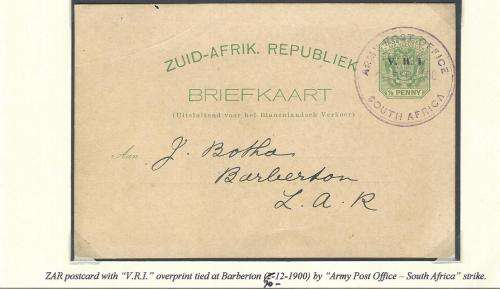 ZUID-AFRIK. REPUBLIEK
ARMY POST OFFICE
V. R. I.
½ PENNY
SOUTH AFRICA
BRIEFKAART
(Uitsluitend voor het Binnenlandsch Verkeer)
Aan J. Botha
Barberton
Z. A. R
ZAR postcard with "V.R.I." overprint tied at Barberton (-12-1900) by "Army Post Office – South Africa" strike.